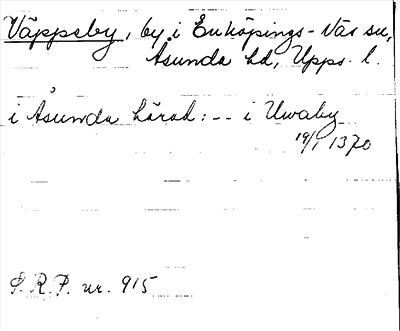 Väppeby, by i Enköpings-Näs sn,
Åsunda hd, Upps. l.
i Åsunda härad: -- i Uwaby
19/1 1370
S.R.P. nr. 915